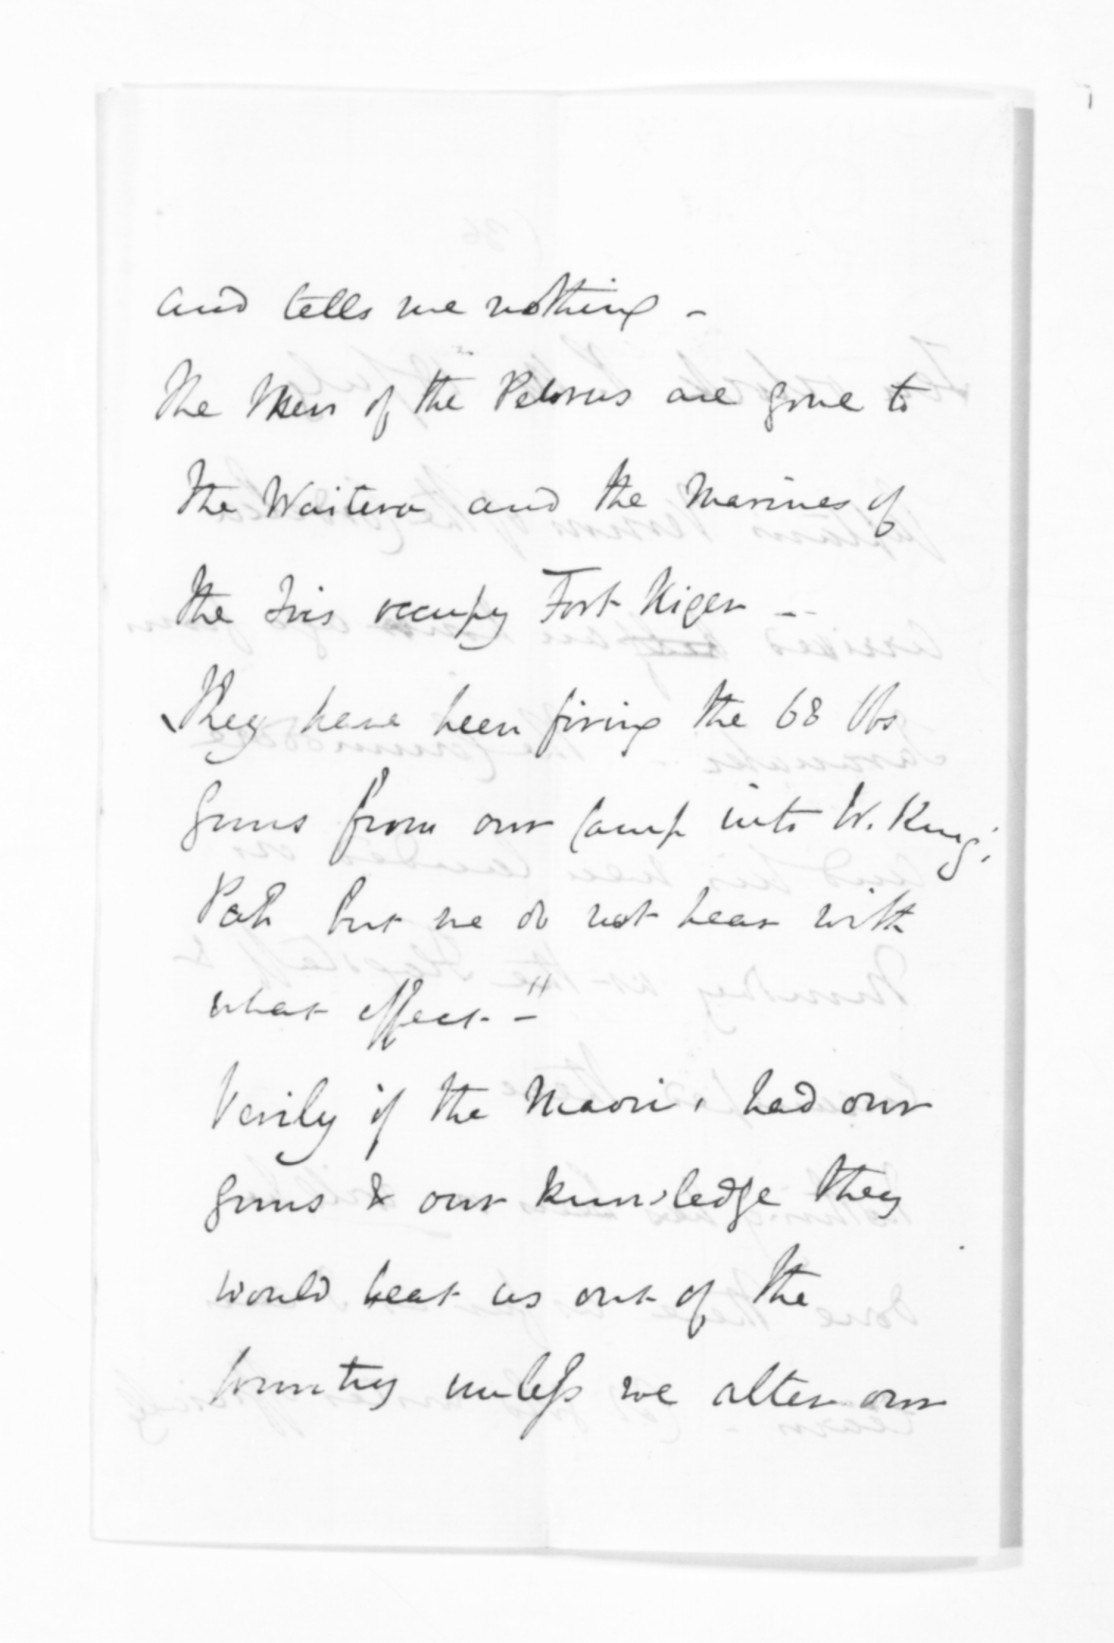 and tells me nothing -
The Men of the Pelorus are gone to
the Waitera and the Marines of
the Iris occupy Fort Niger --
They have been firing the 68 lbs
guns from our Camp into W. Kings
Pah but we do not hear with
what effect -"
Verily if the Maoris had our
guns & our knowledge they
would beat us out of the
Country unless we alter our